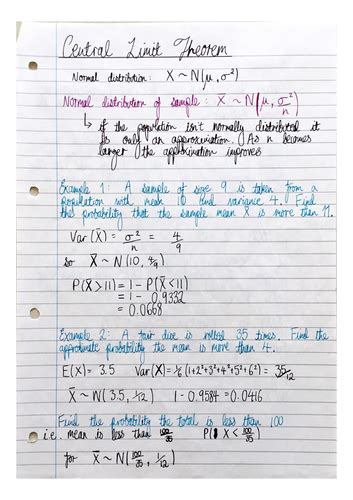 Central Limit Theorem
Normal distribution: X ~ N(μ, σ²)
Normal distribution of sample: X̄ ~ N(μ, σ²/n)
↳ if the population isn't normally distributed it
is only an approximation. As n becomes
larger the approximation improves
Example 1: A sample of size 9 is taken from a
population with mean 10 and variance 4. Find
the probability that the sample mean X̄ is more than 11.
Var(X̄) = σ²/n = 4/9
so X̄ ~ N(10, 4/9)
P(X̄ > 11) = 1 - P(X̄ < 11)
= 1 - 0.9332
= 0.0668
Example 2: A fair dice is rolled 35 times. Find the
approximate probability the mean is more than 4.
E(X) = 3.5 Var(X) = 1/6(1+2²+3²+4²+5²+6²) = 35/12
X̄ ~ N(3.5, 1/12) 1 - 0.9584 = 0.0416
Find the probability the total is less than 100
i.e. mean is less than 100/35 P( X < 100/35)
for X̄ ~ N(100/35, 1/12)